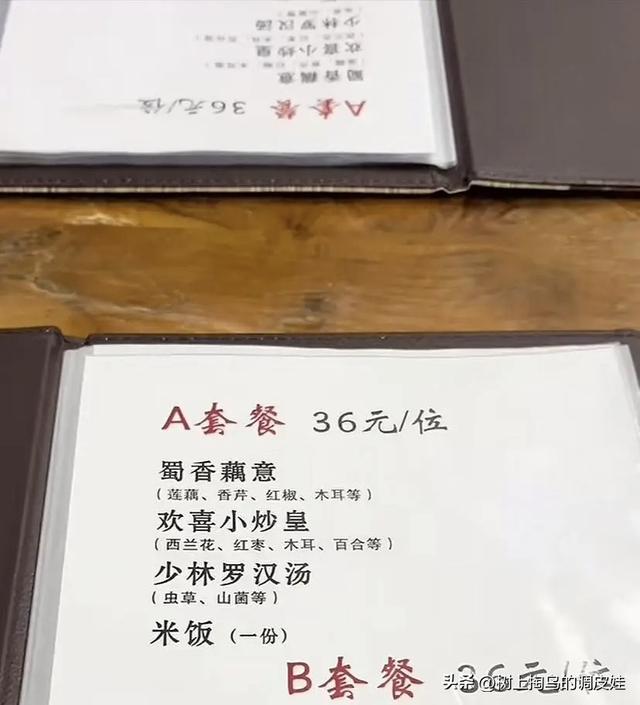 A套餐 36元/位
蜀香藕意
欢喜小炒皇
少林罗汉汤
A套餐 36元/位
蜀香藕意
(莲藕、香芹、红椒、木耳等)
欢喜小炒皇
(西兰花、红枣、木耳、百合等)
少林罗汉汤
(虫草、山菌等)
米饭 (一份)
B套餐 36元/位
头条 @树上掏鸟的调皮娃